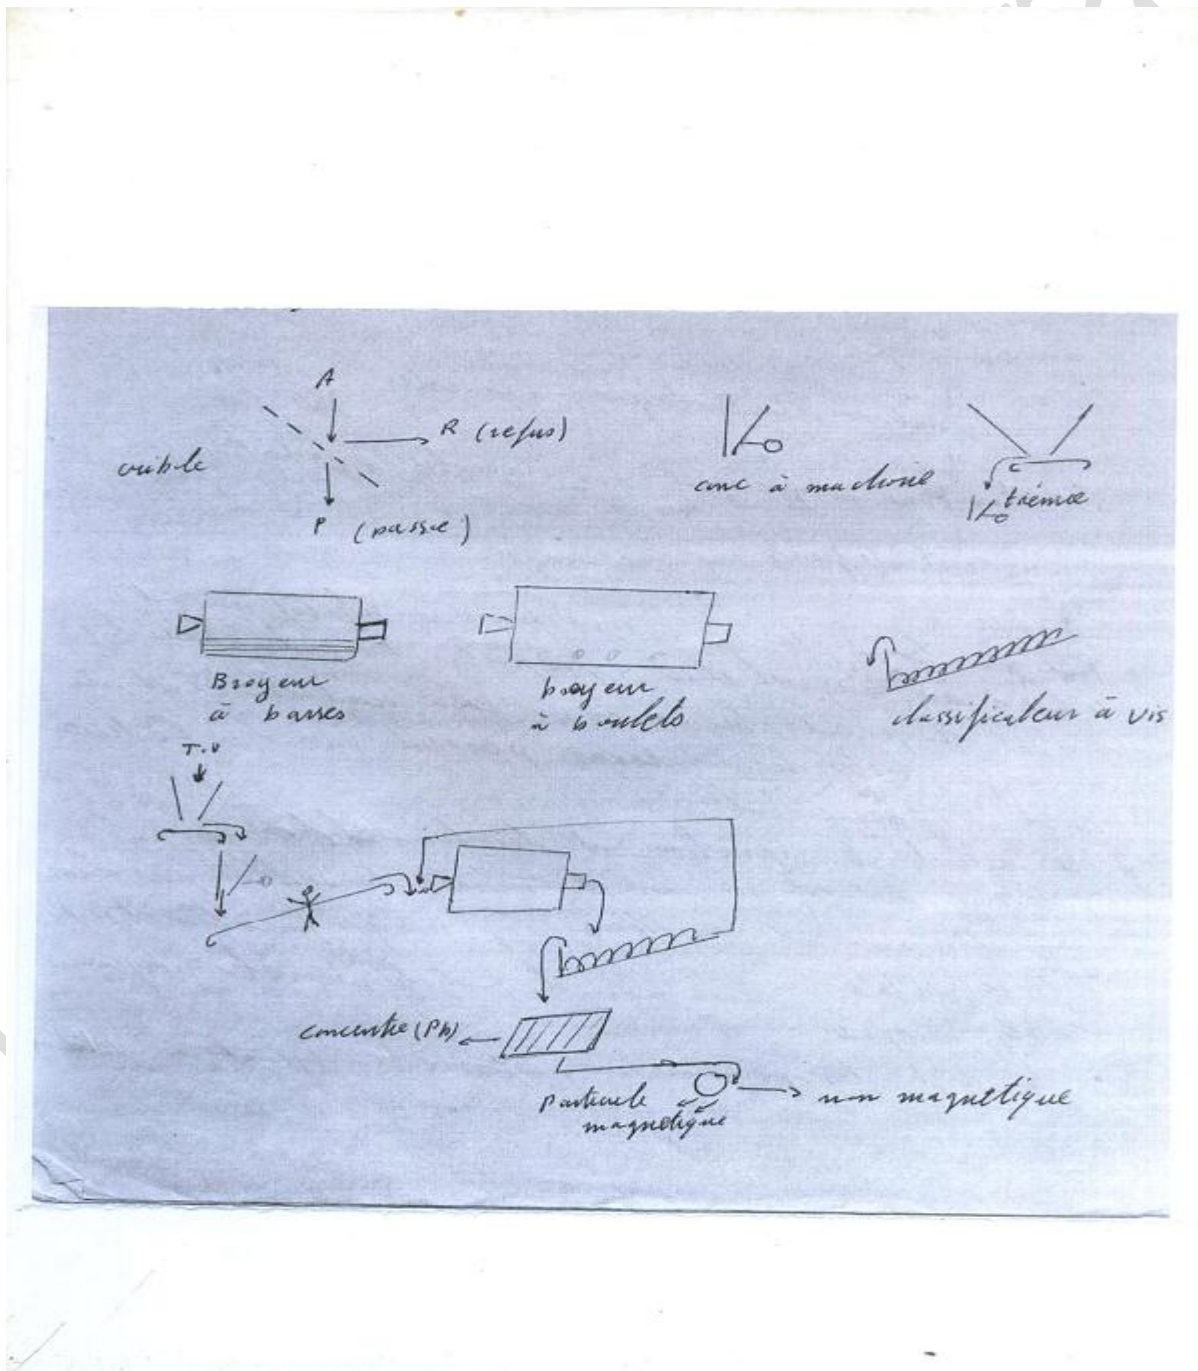 A
R (refus)
crible
P (passé)
conc à machoire
trémie
Broyeur
à barres
broyeur
à boulets
classificateur à vis
T.V
concentré (Pb)
Particule
magnétique
non magnétique